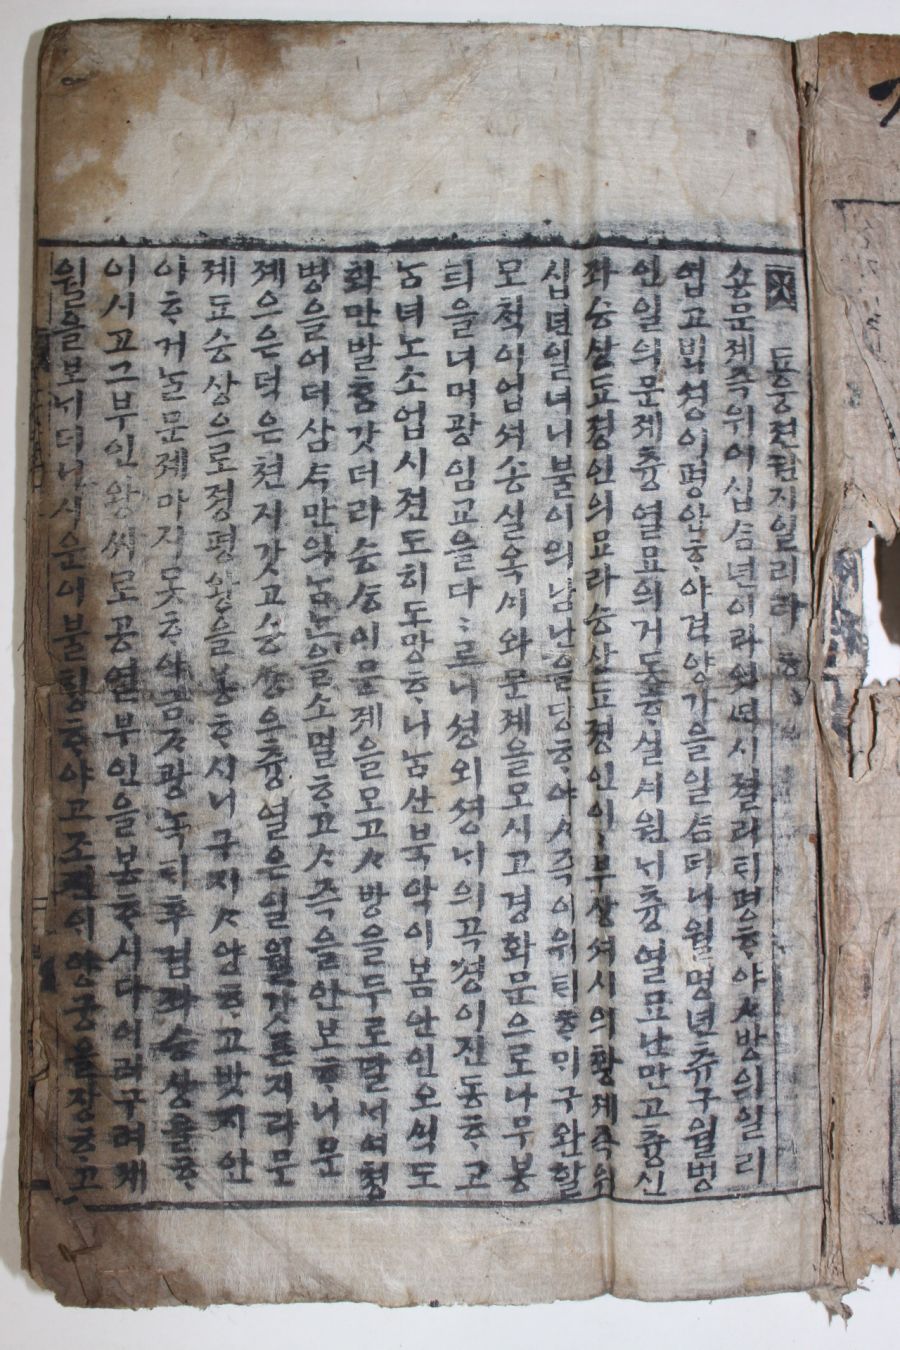 됴웅젼권지일리라
숑문졔즉위이십삼년이라잇 시졀리ᄐᆡ평ᄒᆞ야ᄉᆞ방의일리
업고ᄇᆡᆨ셩이평안ᄒᆞ야격양가을일삼터니 명년츄구월병
인일의문졔츙열묘의거동ᄒᆞ실ᄉᆡ원ᄂᆡ츙열묘난만고츙신
좌승상됴졍인의묘라승상됴졍인이 부상셔시의황졔즉위
십년일너니불이의남난을당ᄒᆞ야ᄉᆞ즉이위ᄐᆡᄒᆞᄆᆡ구완할
모칙이업셔송실옥ᄉᆡ와문졔을모시고경화문으로나무봉
ᄐᆡ을너머광임교을다ᄃᆞ르니셩외셩ᄂᆡ의곡셩이진동ᄒᆞ고
남녀노소업시젼도히도망ᄒᆞ니남산북악이봄안인오ᄉᆡᆨ도
화만발흠갓더라승상이문졔을모고ᄉᆞ방을두로달녀셔쳥
병을어더삼ᄉᆞᆨ만의남는을소멸ᄒᆞ고ᄉᆞ즉을안보ᄒᆞ니문
졔으은덕은쳔지갓고승상우츙열은일월갓튼지라문
졔됴승상으로졍평왕을봉ᄒᆞ시니구지ᄉᆞ양ᄒᆞ고밧지안
이ᄒᆞ거늘문졔마지못ᄒᆞ야금ᄌᆞ광녹ᄐᆡ후겸좌승상을ᄒᆞ
이시고그부인왕씨로공열부인을봉ᄒᆞ시다이러구러졔
월을보ᄂᆡ더니시운이불ᄒᆡᆼᄒᆞ야고조젼의 궁을장ᄒᆞ고